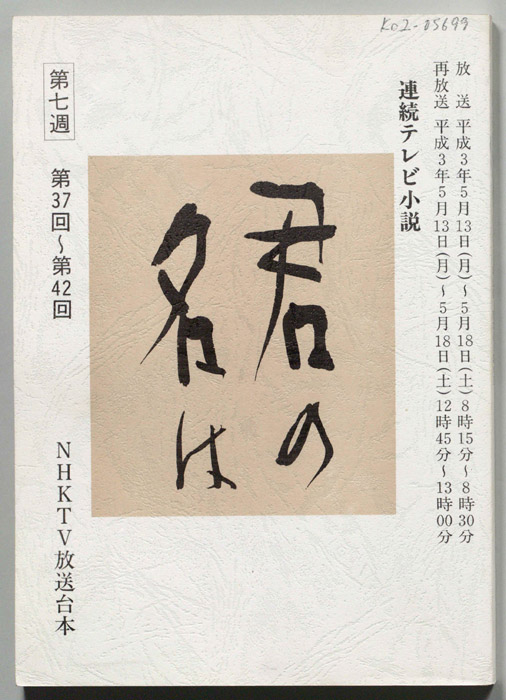 Ko2-05699
放　送　平成3年5月13日(月)～5月18日(土)8時15分～8時30分
再放送　平成3年5月13日(月)～5月18日(土)12時45分～13時00分
連続テレビ小説
君の
名は
第七週
第37回～第42回
NHKTV放送台本